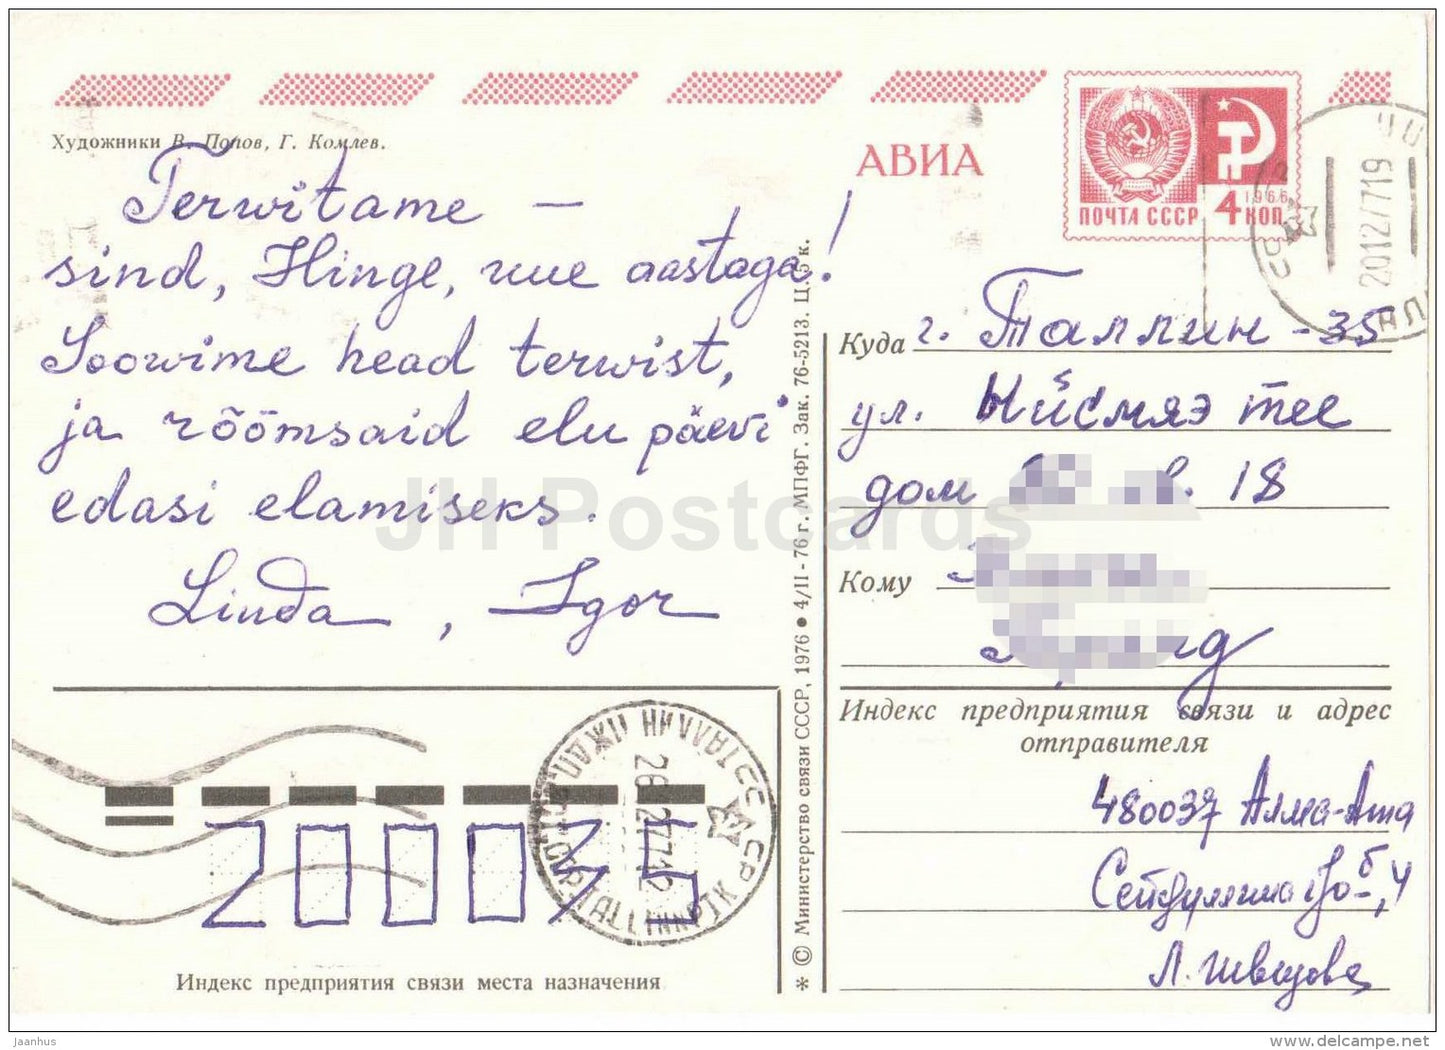 Художники В. Попов, Г. Комлев.
АВИА
1966
ПОЧТА СССР 4 КОП.
2012/7719
Terwitame –
sind, Hinge, uue aastaga!
Soowime head terwist,
ja rõõmsaid elu päevi
edasi elamiseks.
Linda, Igor
Куда г. Таллин - 35
ул. Ыйсмяэ тее
дом 18
Кому
Индекс предприятия связи и адрес
отправителя
480037 Алма-Ата
Л. Швецова
200035
TALLINN
Индекс предприятия связи места назначения
* © Министерство связи СССР, 1976 ● 4/II - 76 г. МПФГ. Зак. 76-5213. Ц. 5 к.
JH Postcards
Jaanhus
http://www.delcampe.net